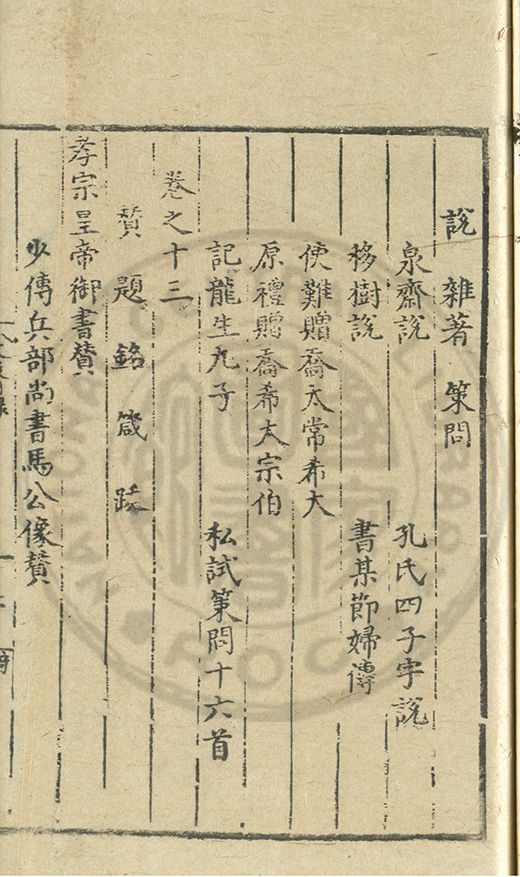 說 雜著 策問
泉齋說 孔氏四子字說
移樹說 書某節婦傳
使難贈喬太常希大
原禮贈喬希大宗伯
記龍生九子 私試策問十六首
卷之十三
贊 題 銘 箴 跋
孝宗皇帝御書贊
少傅兵部尚書馬公像贊